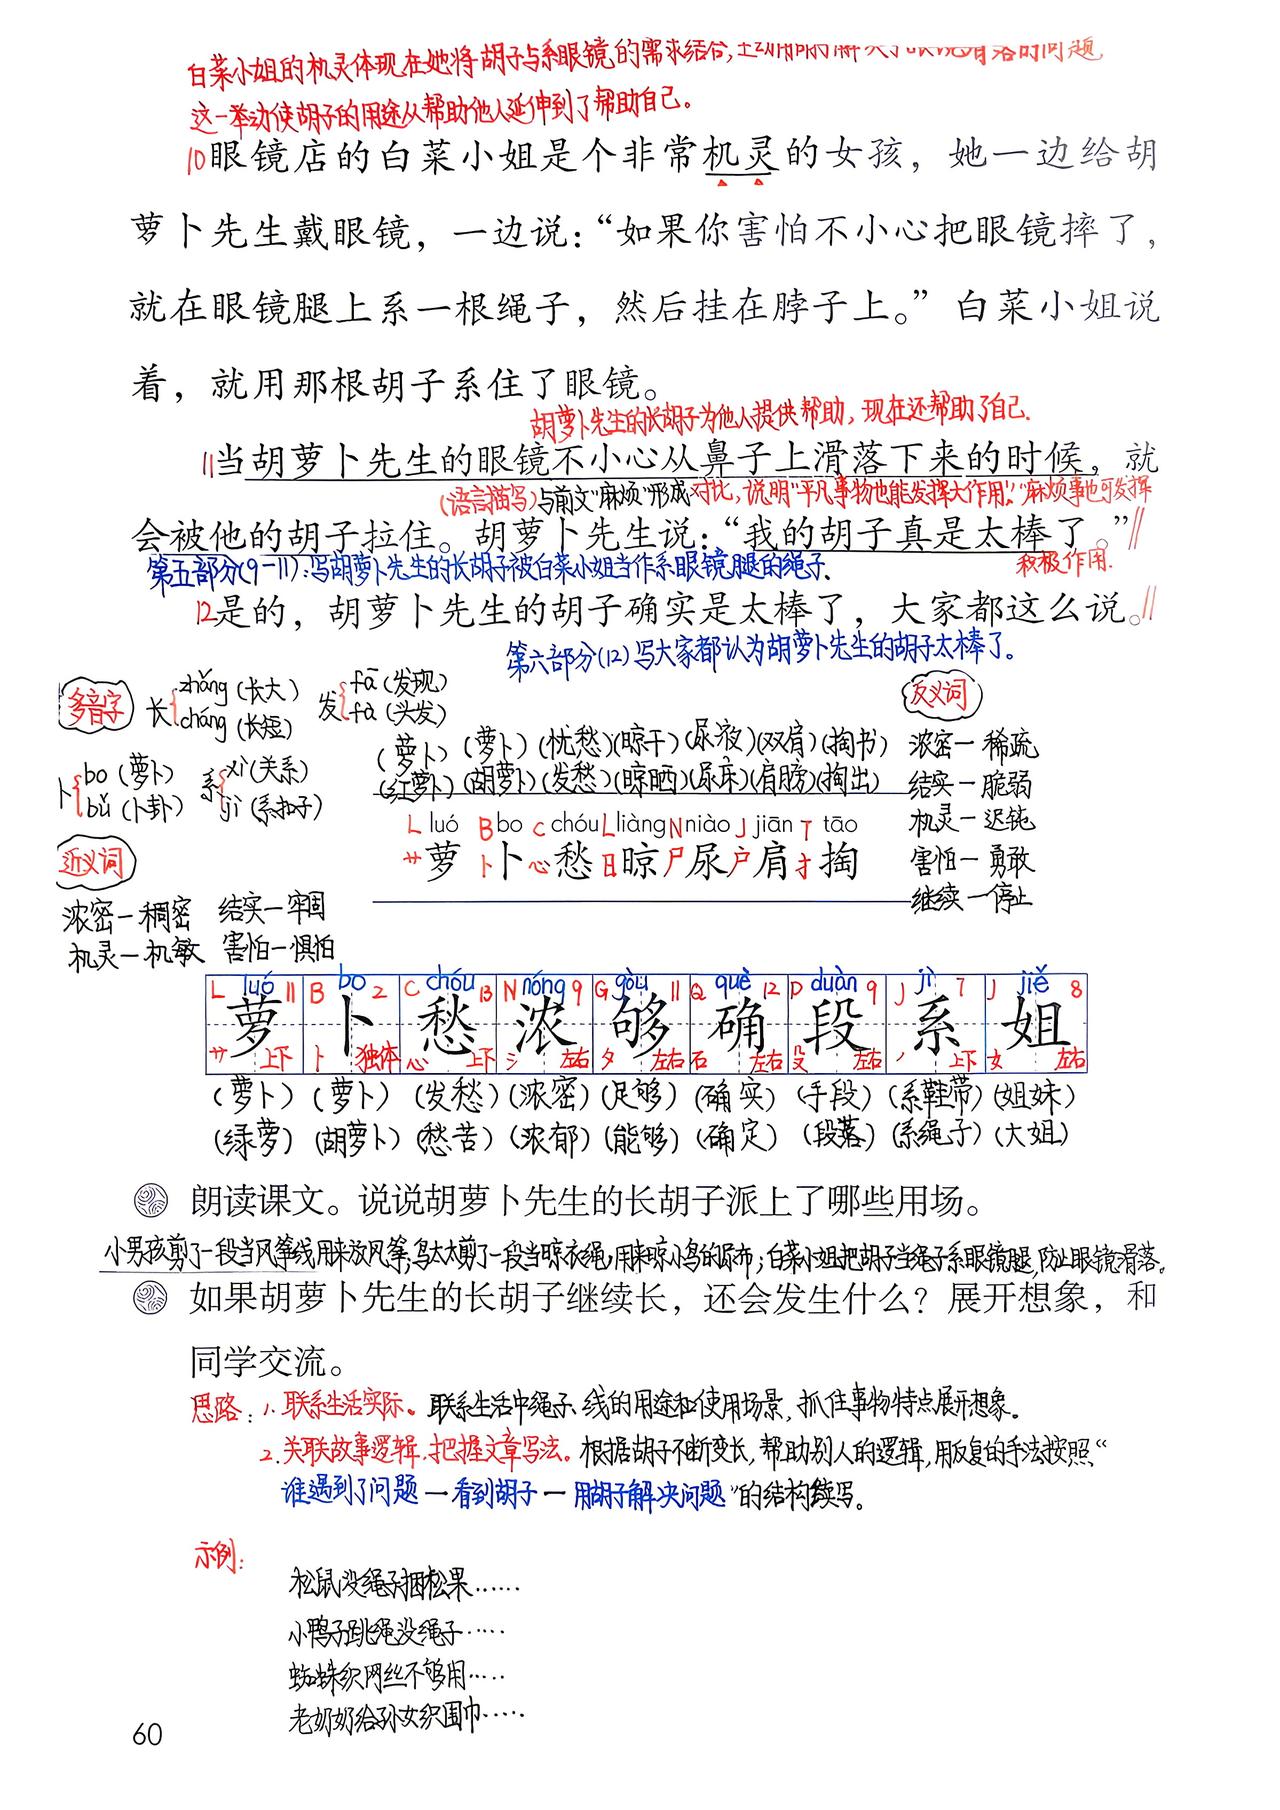 白菜小姐的机灵体现在她将胡子与系眼镜的需求结合,主动用胡子解决了眼镜滑落的问题,
这一举动使胡子的用途从帮助他人延伸到了帮助自己。
10眼镜店的白菜小姐是个非常机灵的女孩，她一边给胡
萝卜先生戴眼镜，一边说：“如果你害怕不小心把眼镜摔了，
就在眼镜腿上系一根绳子，然后挂在脖子上。”白菜小姐说
着，就用那根胡子系住了眼镜。
胡萝卜先生的长胡子为他人提供帮助，现在还帮助了自己.
11当胡萝卜先生的眼镜不小心从鼻子上滑落下来的时候，就
(语言描写)与前文“麻烦”形成对比,说明“平凡事物也能发挥大作用”,“麻烦事也可发挥
会被他的胡子拉住。胡萝卜先生说：“我的胡子真是太棒了。”//
积极作用.
第五部分(9-11):写胡萝卜先生的长胡子被白菜小姐当作系眼镜腿的绳子.
12是的，胡萝卜先生的胡子确实是太棒了，大家都这么说。//
第六部分(12)写大家都认为胡萝卜先生的胡子太棒了。
多音字
长{zhǎng(长大)
cháng(长短)
发{fā(发现)
fà(头发)
卜{bo(萝卜)
bǔ(卜卦)
系{xì(关系)
jì(系扣子)
近义词
浓密—稠密 结实—牢固
机灵—机敏 害怕—惧怕
(萝卜)(萝卜)(忧愁)(晾干)(尿液)(双肩)(掏书)
(红萝卜)(胡萝卜)(发愁)(晾晒)(尿床)(肩膀)(掏出)
L luó B bo C chóu L liàng N niào J jiān T tāo
艹萝 卜卜 心愁 日晾 尸尿 户肩 扌掏
反义词
浓密—稀疏
结实—脆弱
机灵—迟钝
害怕—勇敢
继续—停止
L luó 11 B bo 2 C chóu 13 N nóng 9 G gòu 11 Q què 12 D duàn 9 J jì 7 J jiě 8
萝 卜 愁 浓 够 确 段 系 姐
艹 上下 卜 独体 心 上下 氵 左右 夕 左右 石 左右 殳 左右 丿 上下 女 左右
(萝卜)(萝卜)(发愁)(浓密)(足够)(确实)(手段)(系鞋带)(姐妹)
(绿萝)(胡萝卜)(愁苦)(浓郁)(能够)(确定)(段落)(系绳子)(大姐)
朗读课文。说说胡萝卜先生的长胡子派上了哪些用场。
小男孩剪了一段当风筝线,用来放风筝;鸟太太剪了一段当晾衣绳,用来晾小鸟的尿布;白菜小姐把胡子当绳子系眼镜腿,防止眼镜滑落。
如果胡萝卜先生的长胡子继续长，还会发生什么？展开想象，和
同学交流。
思路:1.联系生活实际。联系生活中绳子、线的用途和使用场景,抓住事物特点展开想象。
2.关联故事逻辑,把握文章写法。根据胡子不断变长,帮助别人的逻辑,用反复的手法按照“
谁遇到了问题—看到胡子—用胡子解决问题”的结构续写。
示例:
松鼠没绳子捆松果……
小鸭子跳绳没绳子……
蜘蛛织网丝不够用……
老奶奶给孙女织围巾……
60